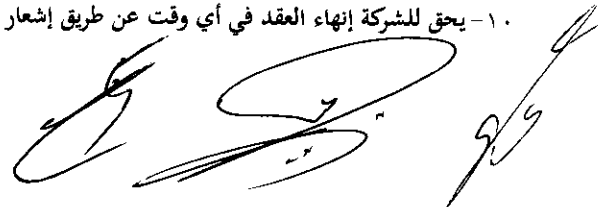 ١٠- يحق للشركة إنهاء العقد في أي وقت عن طريق إشعار